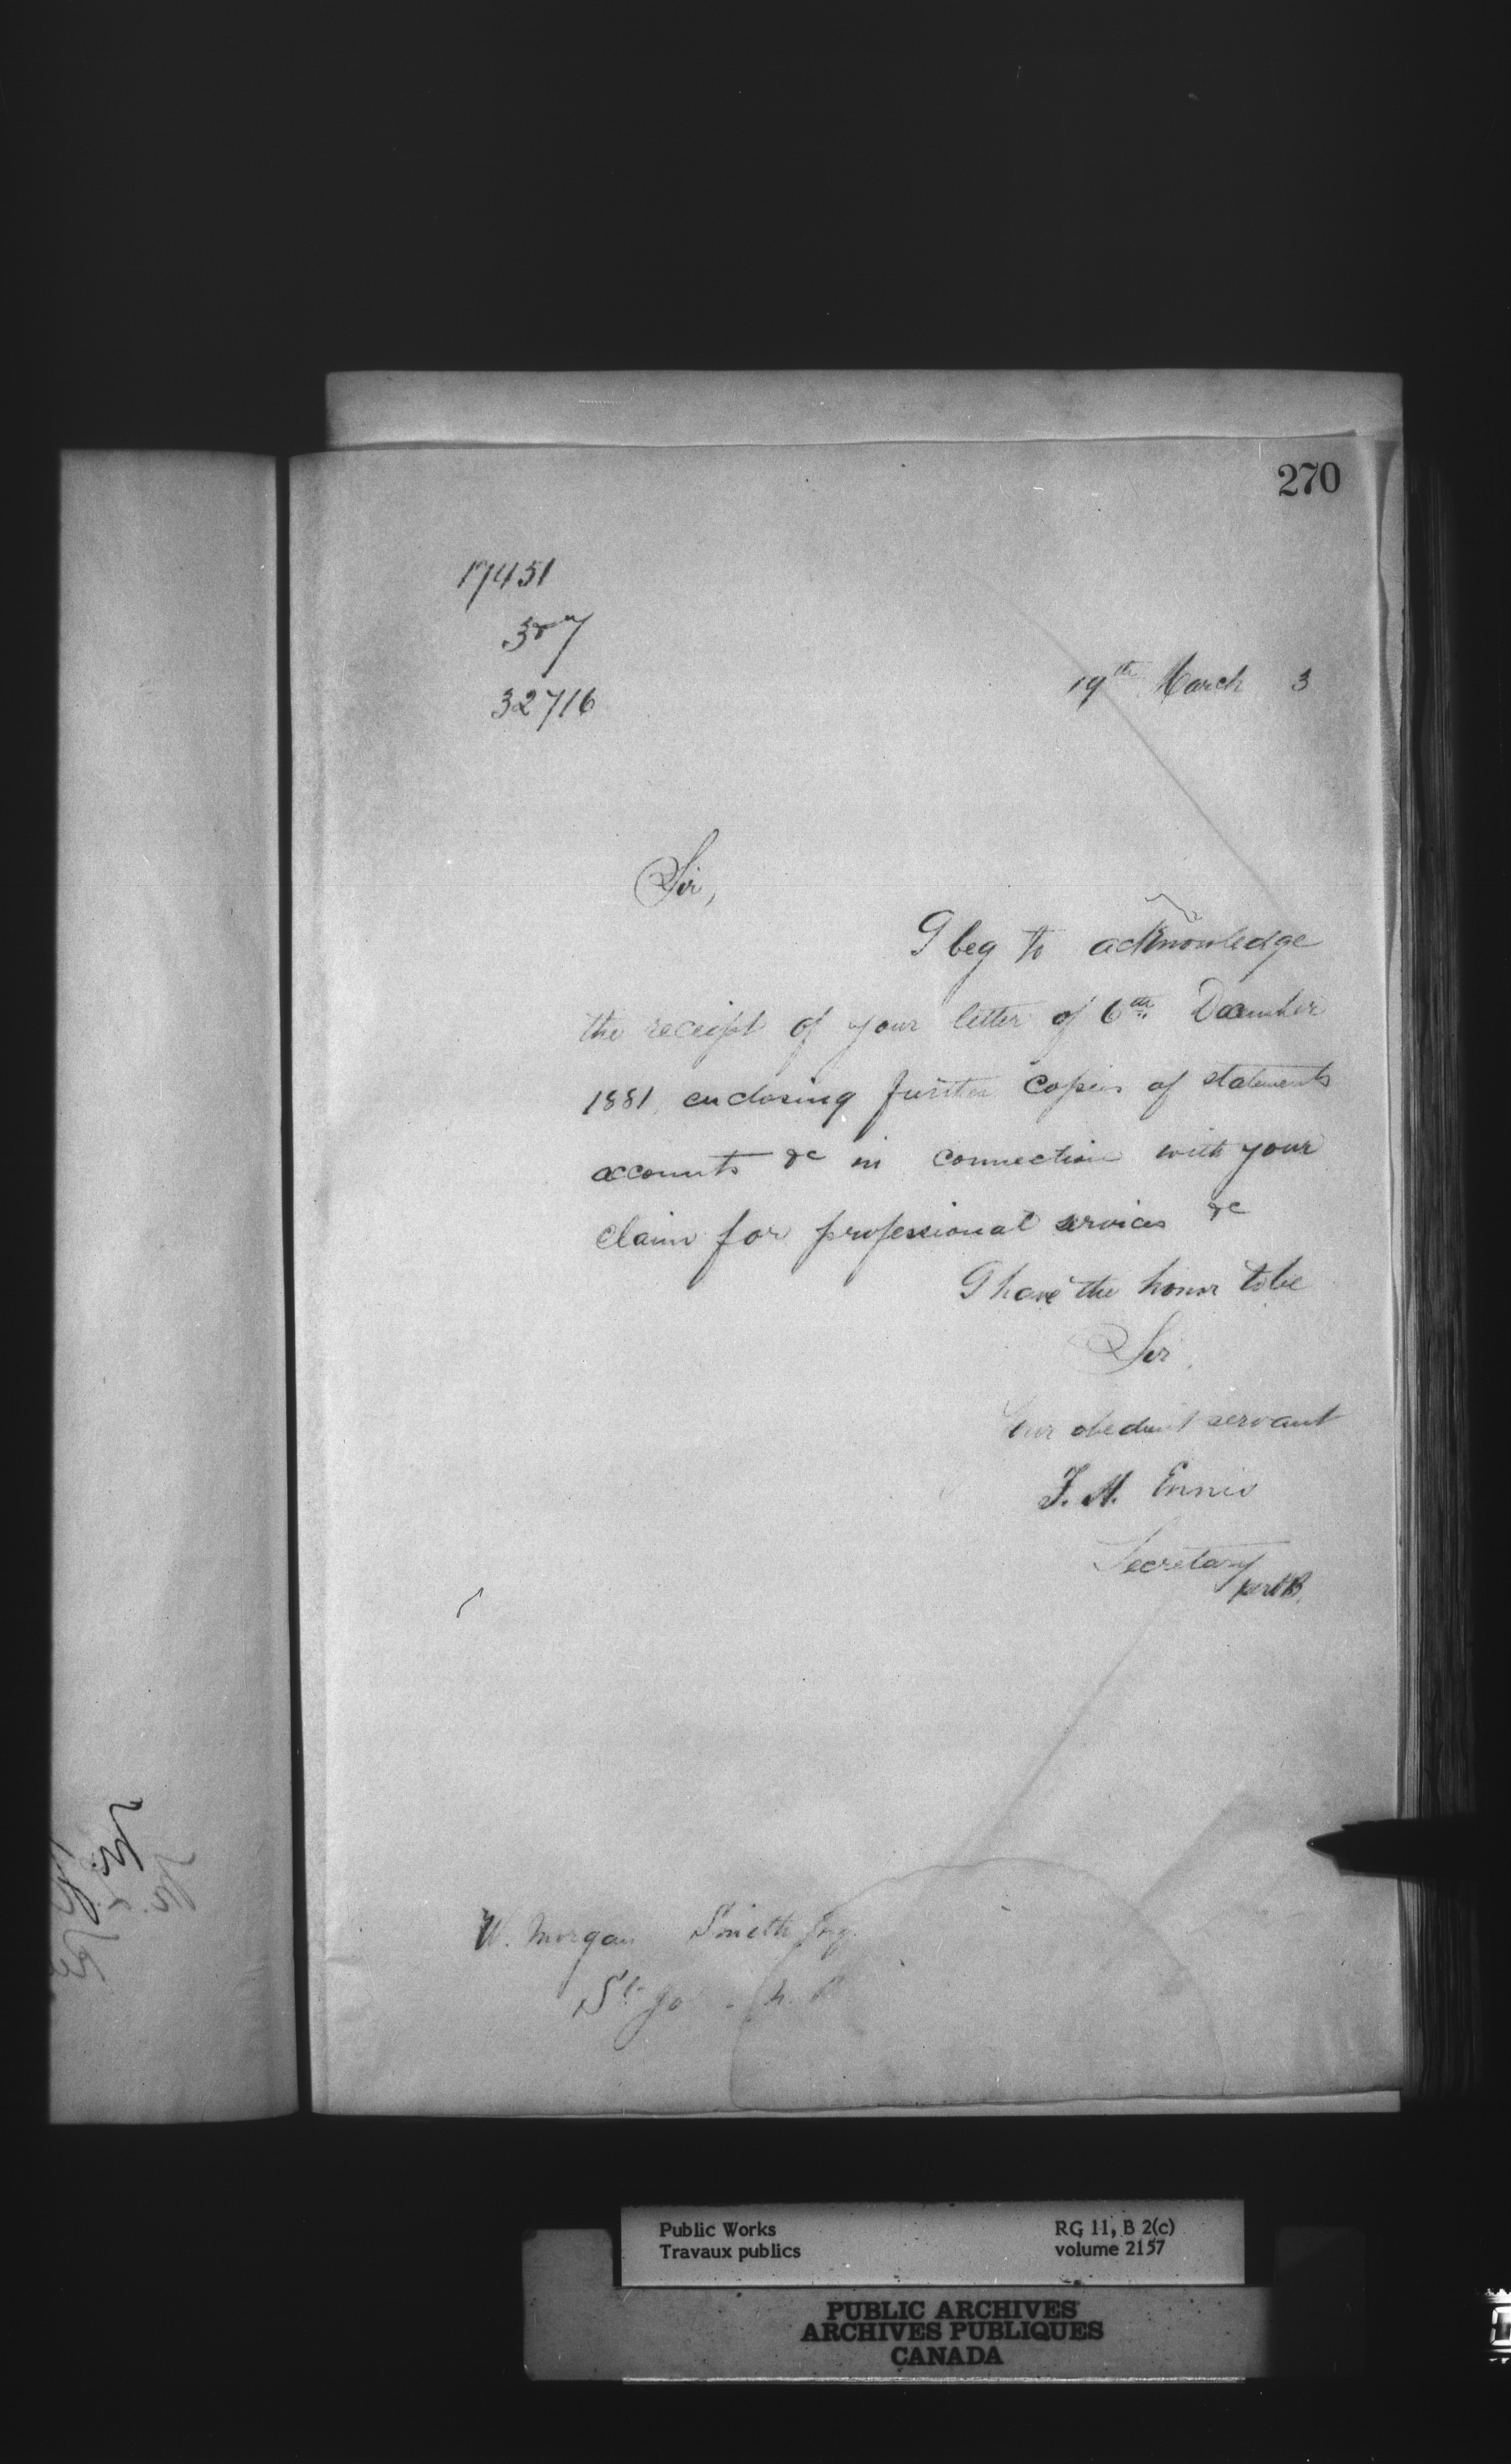 270
17451
327
32716
19th March 3
Sir,
I beg to acknowledge
the receipt of your letter of 6th December
1881 enclosing further copies of statements
accounts &c in connection with your
claim for professional services &c
I have the honor to be
Sir
Your obedient servant
F. H. Ennis
Secretary
W. Morgan Smith Esq.
St. Jo
Public Works
Travaux publics
RG 11, B 2(c)
volume 2157
PUBLIC ARCHIVES
ARCHIVES PUBLIQUES
CANADA